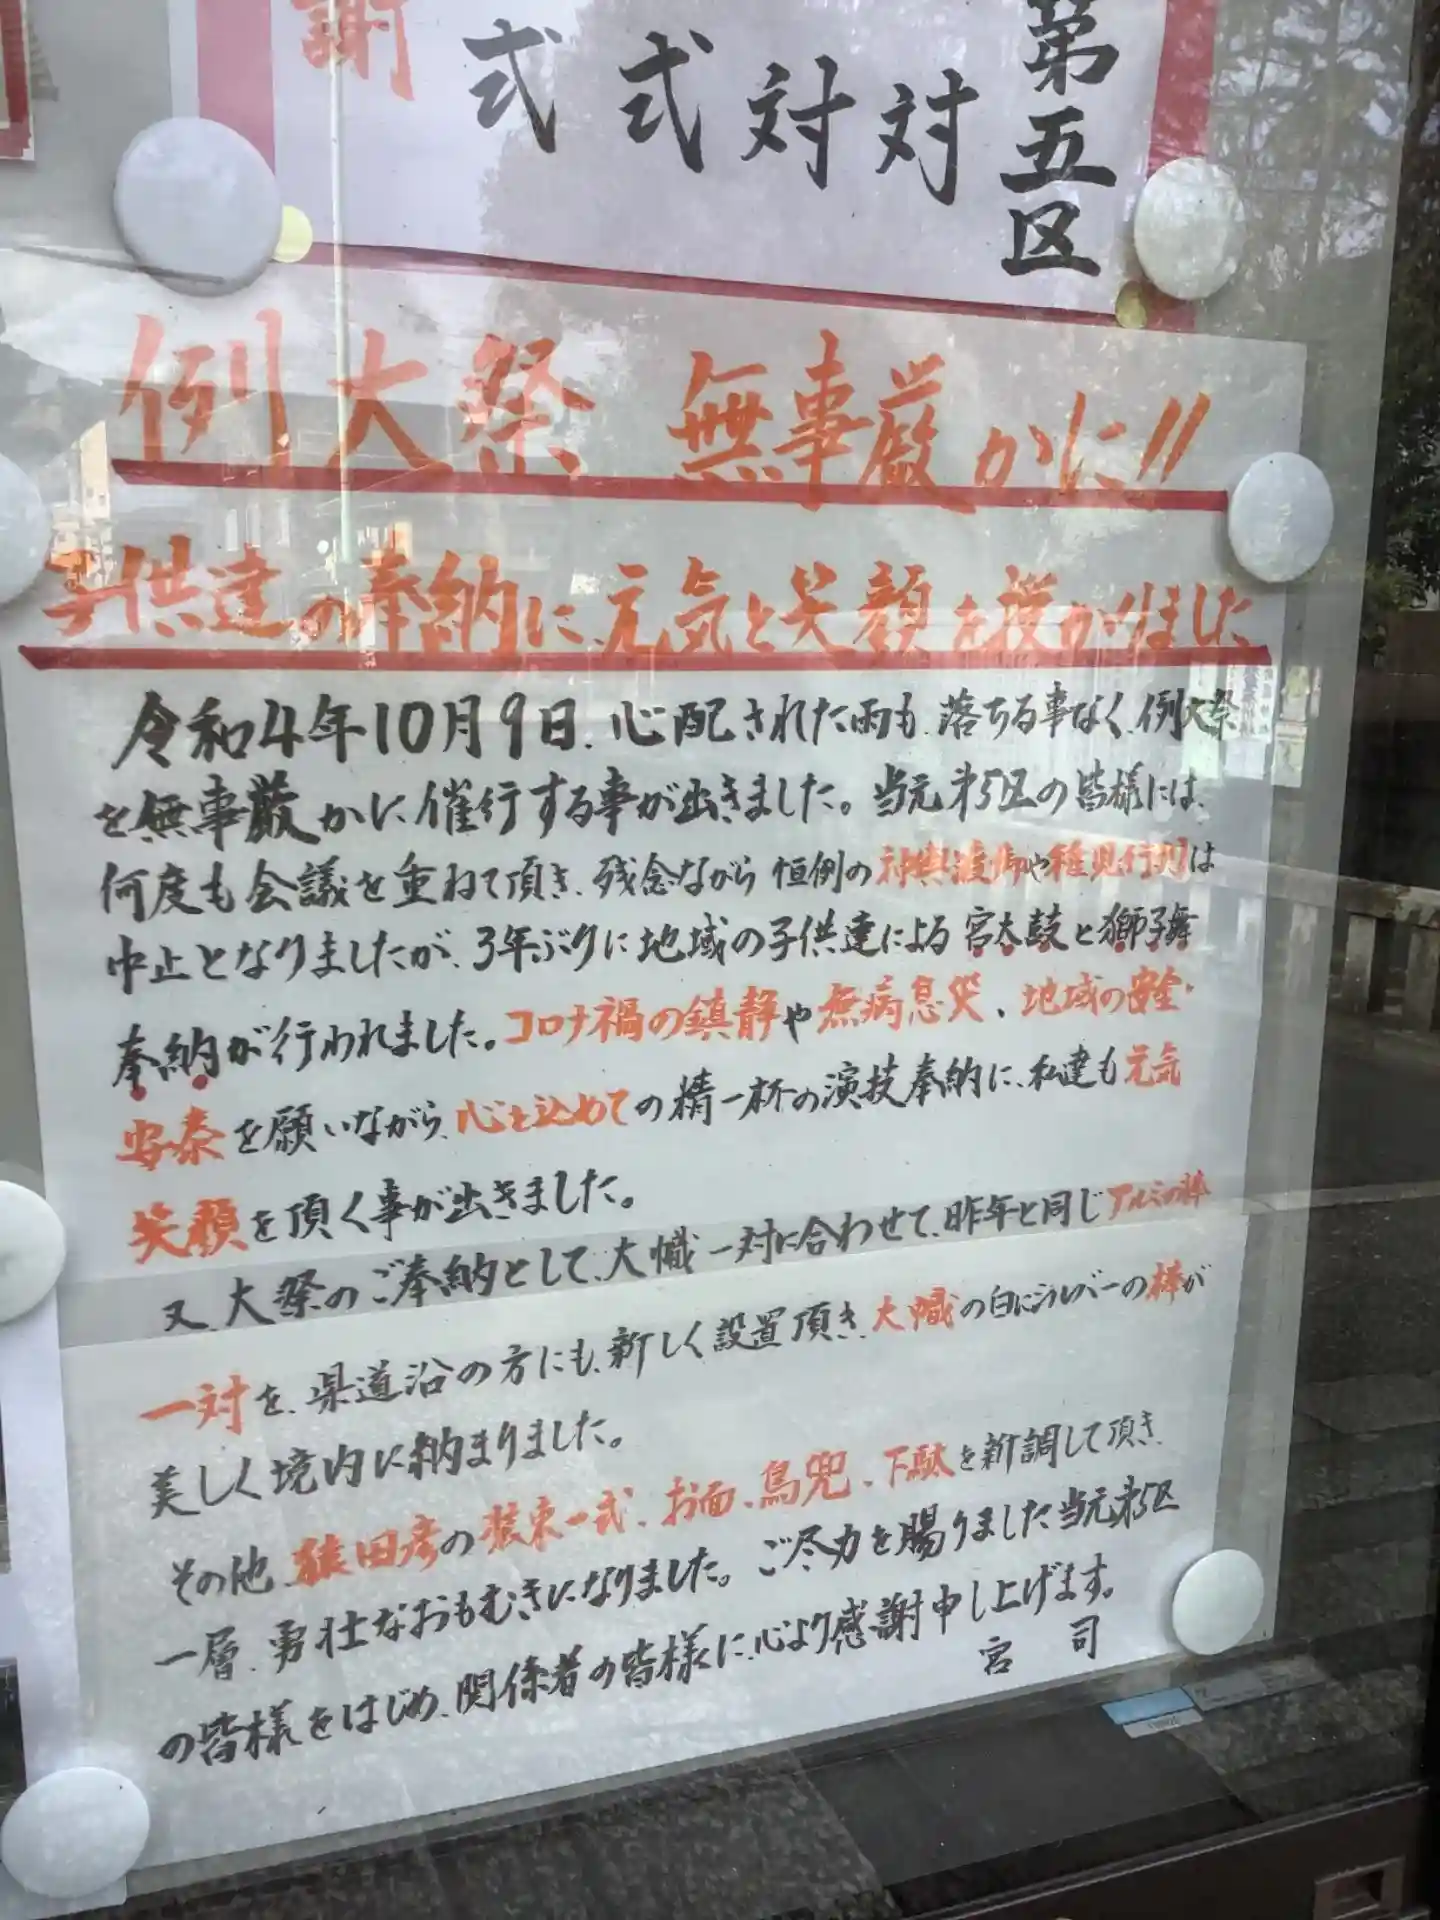 謝
第五区
対
対
式
式
例大祭 無事厳かに!!
子供達の奉納に、元気と笑顔を授かりました
令和4年10月9日、心配された雨も、落ちる事なく、例大祭
を無事厳かに、催行する事が出きました。当元第5区の皆様には、
何度も会議を重ねて頂き、残念ながら恒例の神輿渡御や稚児行列は
中止となりましたが、3年ぶりに地域の子供達による宮太鼓と獅子舞
奉納が行われました。コロナ禍の鎮静や無病息災、地域の安全・
安泰を願いながら、心を込めての精一杯の演技奉納に、私達も元気
笑顔を頂く事が出きました。
又、大祭のご奉納として、大幟一対に合わせて、昨年と同じアルミの棒
一対を、県道沿の方にも、新しく設置頂き、大幟の白にシルバーの棒が
美しく境内に納まりました。
その他、猿田彦の装束一式、お面、鳥兜、下駄を新調して頂き、
一層、勇壮なおもむきになりました。ご尽力を賜りました当元第5区
の皆様をはじめ、関係者の皆様に、心より感謝申し上げます。
宮 司